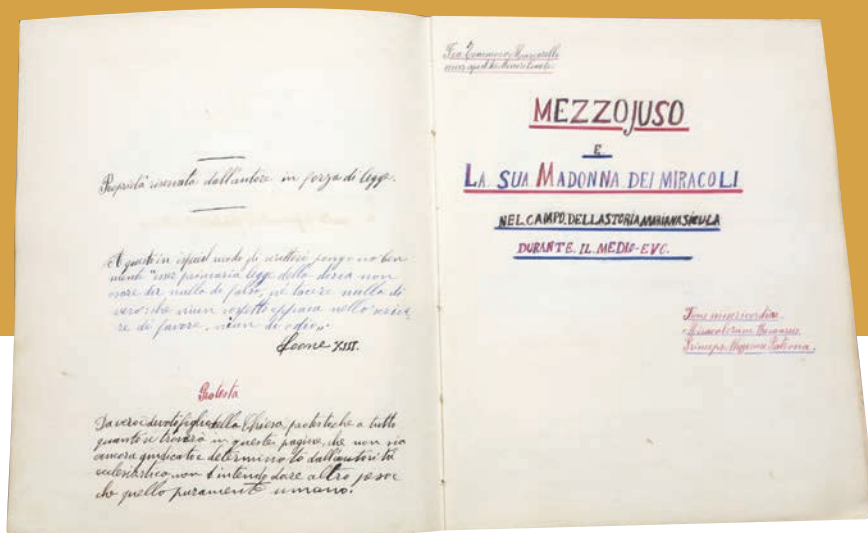 Proprietà riservata dall'autore in forza di legge.
A questo in ispecial modo gli scrittori pongono ben
mente "esser primaria legge della storia non
osare dir nulla di falso, nè tacere nulla di
vero: che niun sospetto appaia nello scrive-
re di favore, niun di odio„
Leone XIII.
Protesta
Da vero e devoto figlio della Chiesa, protesto che a tutto
quanto si troverà in queste pagine, che non sia
ancora giudicato e determinato dall'autorità
ecclesiastica, non s'intende dare altro peso
che quello puramente umano.
Fra Domenico
MEZZOJUSO
E
LA SUA MADONNA DEI MIRACOLI
NEL CAMPO DELLA STORIA MARIANA SICULA
DURANTE IL MEDIO-EVO.
misericordiae
Miraculorum
Princeps Patrona